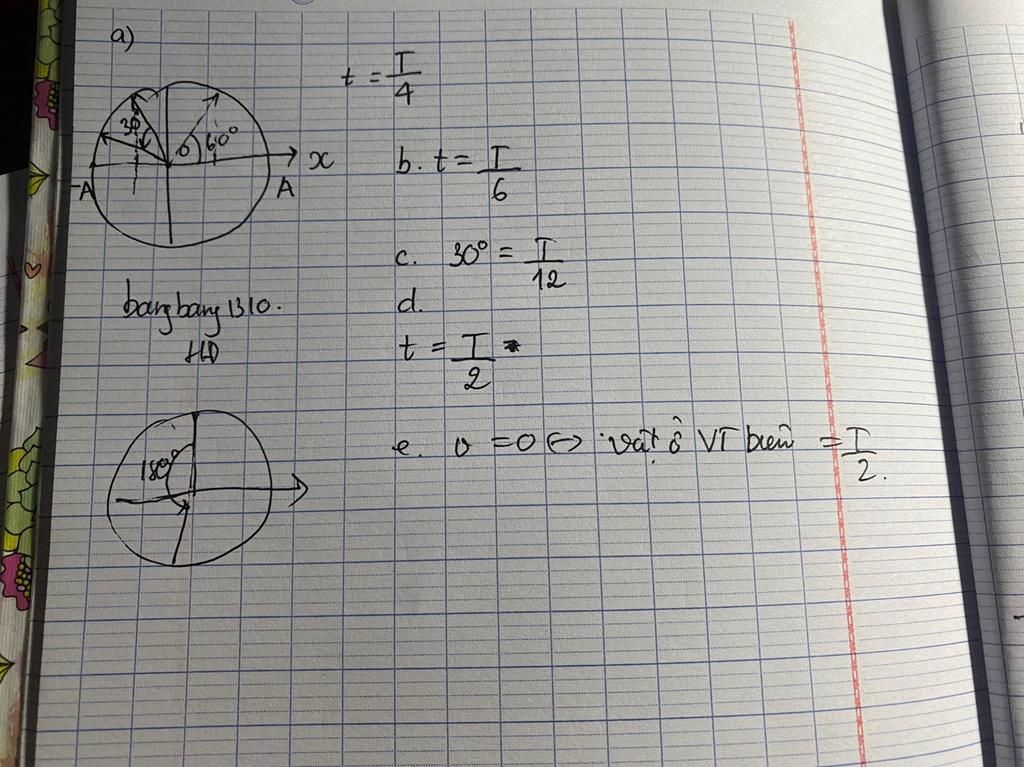 a)
t = T/4
30°
60°
x
-A
A
b. t = T/6
c. 30° = T/12
bangbang1310.
HD
d.
t = T/2
180°
e. v = 0 <=> vật ở VT biên = T/2.